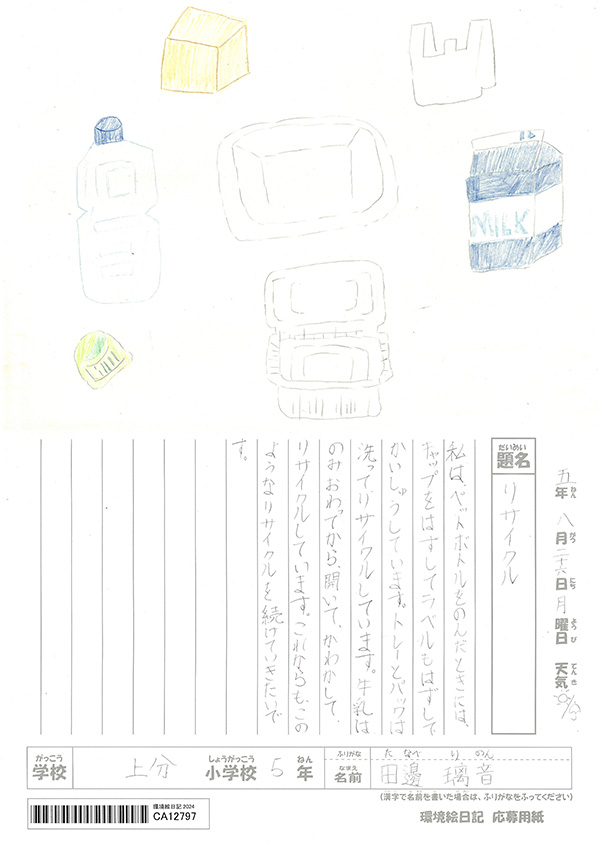 MILK
五年 八月二十六日 月曜日 天気
ねん がつ にち ようび てんき
だいめい
題名
リサイクル
私は、ペットボトルをのんだときには、
キャップをはずしてラベルもはずして
かいしゅうしています。トレーとパックは
洗ってリサイクルしています。牛乳は
のみおわってから、開いて、かわかして、
リサイクルしています。これからも、この
ようなリサイクルを続けていきたいで
す。
がっこう しょうがっこう ねん
学校 上分 小学校 5年
ふりがな たなべ りのん
なまえ
名前 田邊 璃音
(漢字で名前を書いた場合は、ふりがなをふってください)
環境絵日記 2024
CA12797
環境絵日記 応募用紙